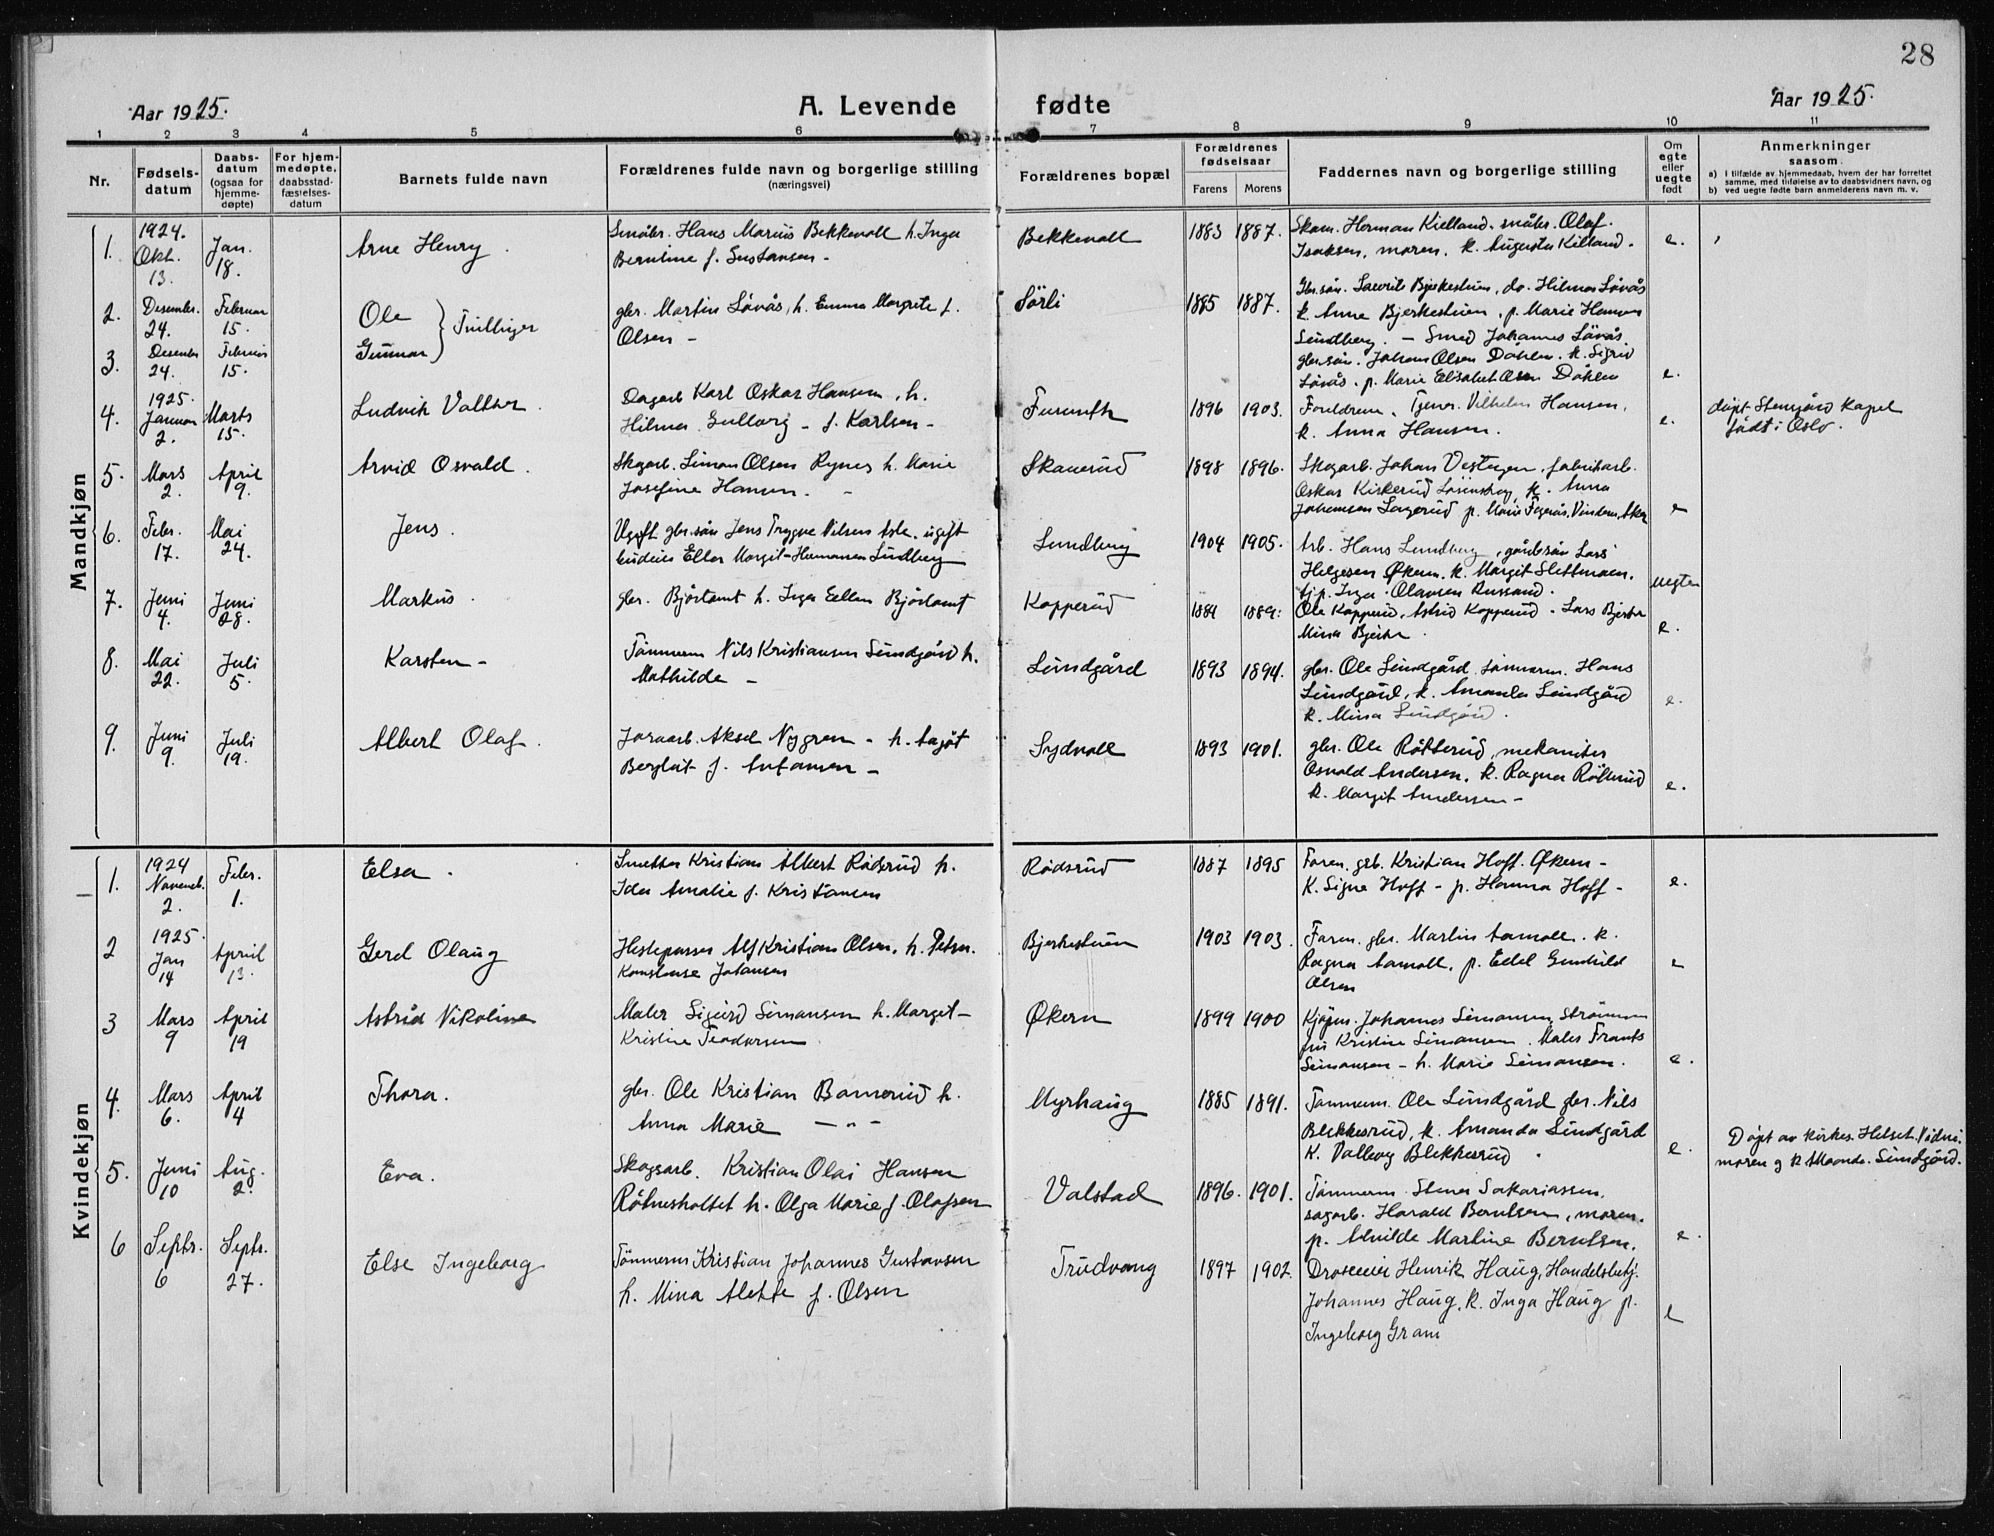 28
Aar 1925.
A. Levende fødte
Aar 1925.
1 2 3 4 5 6 7 8 9 10 11
Nr.
Fødsels-
datum
Daabs-
datum
(ogsaa for
hjemme-
døpte)
For hjem-
medøpte,
daabsstad-
fæstelses-
datum
Barnets fulde navn
Forældrenes fulde navn og borgerlige stilling
(næringsvei)
Forældrenes bopæl
Forældrenes
fødselsaar
Farens Morens
Faddernes navn og borgerlige stilling
Om
egte
eller
uegte
født
Anmerkninger
saasom.
a) I tilfælde av hjemmedaab, hvem der har forrettet
samme, med tilføielse av to daabsvidners navn, og
b) ved uegte fødte barn anmelderens navn m. v.
Mandkjøn
1.
1924.
Okt.
13.
Jan.
18.
Arne Henry.
Småbr. Hans Marius Bekkevoll h. Inga
Berntine f. Gustavsen -
Bekkevoll
1883 1887.
Herman Kielland. småbr. Olaf
Isaksen, moren, k. Augusta Kielland.
e.
2.
Desember.
24.
Februar
15.
Ole
3.
Desember
24.
Februar
15.
Gunnar } Tvillinger
gbr. Martin Løvås, h. Emma Margrete f.
Olsen -
Sörli
1885 1887.
Gbr.søn. Laurits Bjerkestuen, do. Hilmar Løvås
k. Anne Bjerkestuen, p. Marie Hansen
Sundberg. - Smed Johannes Løvås.
gbr.søn. Johan Olsen Dahlen. k. Sigrid
Løvås. p. Marie Elisabet Olsen Dåhlen
e.
4.
1925.
Januar
2.
Marts
15.
Ludvik Valther.
Dagarb Karl Oskar Hansen, h.
Hilma Gullborg - f. Karlsen -
1896 1903.
Foreldrene, Tjener. Vilhelm Hansen,
k. Anna Hansen.
e.
døpt Stensgård Kapel
født i Oslo.
5.
Mars
2.
April
9.
Arvid Osvald.
Skogarb. Simon Olsen Rynes h. Marie
Josefine Hansen. -
Skauerud
1898 1896.
Skogarb. Johan Vestgen, fabrikarb.
Oskar Kirkerud k. Anna
Johansen Lagerud p. Marie
e
6.
Febr.
17.
Mai
24.
Jens.
Ugift gbr.søn Jens Trygve Nilsen Asle, ugift
budeie Ella Margit Hermansen Lundberg
Lundberg
1904 1905.
Arb. Hans Lundberg, gårdb.søn Lars
Helgesen Økern. k. Margit Slettmoen.
tj.p. Inga Olavsen Russand.
uegte
7.
Juni
4.
Juni
28.
Markus.
gbr. Bjørtomt h. Inga Ellen Bjørtomt
Kopperud
1884 1889.
Ole Kopperud, Astrid Kopperud. Lars
Mina
e.
8.
Mai
22.
Juli
5.
Karsten -
Tömmerm Nils Kristiansen Lundgård h.
Mathilde -
Lundgård
1893 1894.
gbr. Ole Lundgård. tömmerm. Hans
Lundgård, k. Amanda Lundgård
k. Mina Lundgård.
e.
9.
Juni
9.
Juli
19.
Albert Olaf.
Jordarb. Aksel Nygren - h. Aagot
Berglut f. Antonsen -
Sydvoll
1893 1901.
gbr. Ole Røtterud, mekaniker
Osvald Andersen, k. Ragna Røtterud
k. Margit Andersen -
e.
Kvindekjøn
1.
1924
Novemb.
2.
Febr.
1.
Elsa.
Kristian Albert Rødsrud h.
Ida Amalie f. Kristiansen
Rødsrud
1887 1895
Faren. gbr. Kristian Hoff. Økern -
k. Signe Hoff - p. Hanna Hoff -
e.
2
1925.
Jan
14
April
13.
Gerd Olaug
Hestepasser Alf Kristian Olsen, h. Petra
Konstanse Johansen
Bjerkestuen
1903 1903.
Faren. gbr. Martin Aamoll. k.
Ragna Aamoll, p. Edel Gunhild
Olsen
e
3
Mars
9
April
19
Astrid Nikoline
Maler Sigurd Simonsen h. Margit
Kristine Teodorsen
Økern
1899 1900
Kjøpm. Johannes Simonsen, Strömmen
fru Kristine Simonsen. Maler Frants
Simonsen - h. Marie Simonsen.
e.
4.
Mars
6.
April
4
Thora.
gbr. Ole Kristian Bamerud h.
Anna Marie - " -
Myrhaug
1885 1891.
Tömmerm. Ole Lundgård gbr. Nils
Blekkerud, k. Amanda Lundgård
k. Valborg Blekkerud
e.
Døpt av kirkes. Helset. Vidne:
moren og k. Amanda. Lundgård.
5.
Juni
10
Aug.
2.
Eva.
Skogsarb. Kristian Olai Hansen
Røtnesholtet h. Olga Marie f. Olafsen
Valstad
1896. 1901.
Tömmerm. Stener Sakariassen.
sagarb. Harald Berntsen, moren.
p. Alvilde Martine Berntsen.
e.
6
Septr.
6
Septr.
27.
Else Ingeborg
Tömmerm Kristian Johannes Gustavsen
h. Mina Alette f. Olsen
Trudvang
1897 1902.
Droseeier Henrik Haug, Handelsbetj.
Johannes Haug, k. Inga Haug p.
Ingeborg Gram
e